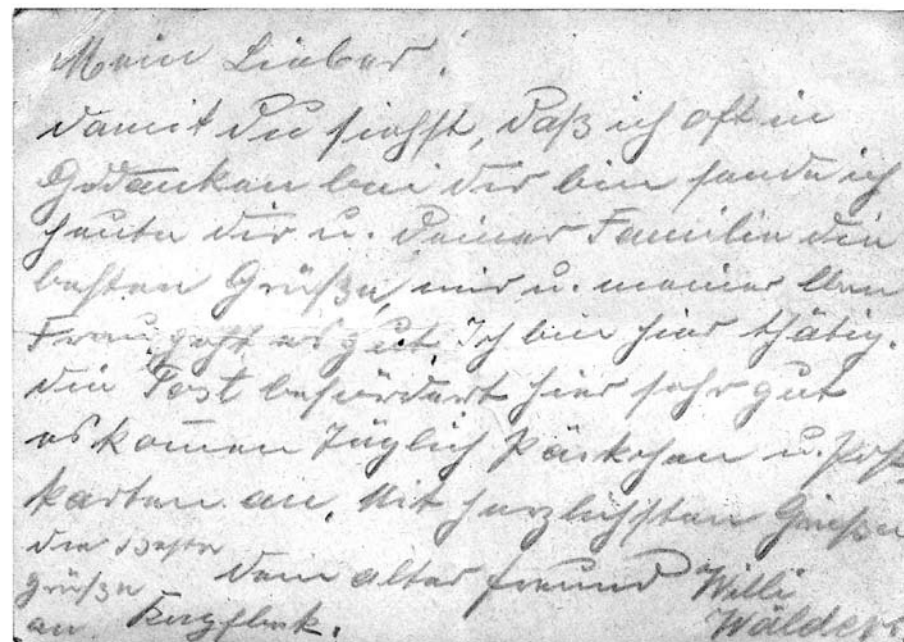 Mein Lieber!
damit du siehst, daß ich oft in
Gedanken bei dir bin sende ich
heute dir u. deiner Familie die
besten Grüße, mir u. meiner lben
Frau geht es gut. Ich bin hier thätig.
die Post befördert hier sehr gut
es komen täglich Päckchen u. Post-
karten an. Mit herzlichsten Grüßen
dein alter Freund Willi
Wälder
die Beste
Grüße
an